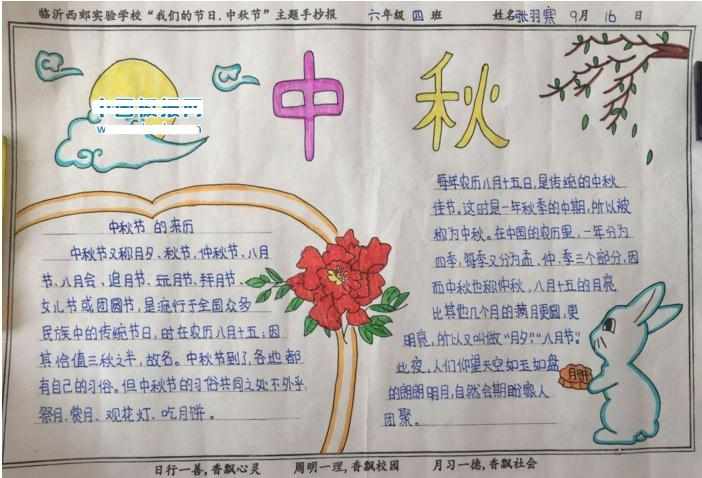 临沂西郊实验学校“我们的节日.中秋节”主题手抄报 六年级 四 班 姓名 张羽霂 9月 16 日
中秋
中秋节 的来历
中秋节又称月夕、秋节、仲秋节、八月
节、八月会、追月节、玩月节、拜月节、
女儿节或团圆节，是流行于全国众多
民族中的传统节日，时在农历八月十五；因
其恰值三秋之半，故名。中秋节到了，各地都
有自己的习俗。但中秋节的习俗共同之处不外乎
祭月、赏月、观花灯、吃月饼。
每年农历八月十五日，是传统的中秋
佳节。这时是一年秋季的中期，所以被
称为中秋。在中国的农历里，一年分为
四季，每季又分为孟、仲、季三个部分，因
而中秋也称仲秋。八月十五的月亮
比其他几个月的满月更圆，更
明亮，所以又叫做“月夕”“八月节”。
此夜，人们仰望天空如玉如盘
的朗朗明月，自然会期盼家人
团聚。
月饼
日行一善，香飘心灵 周明一理，香飘校园 月习一德，香飘社会